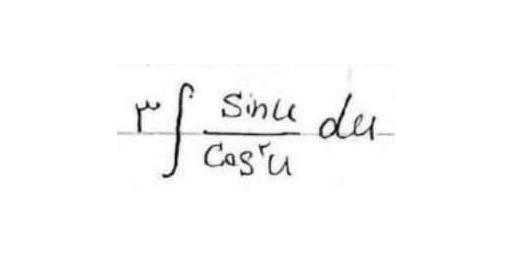 ۳∫ sinu / cos²u du